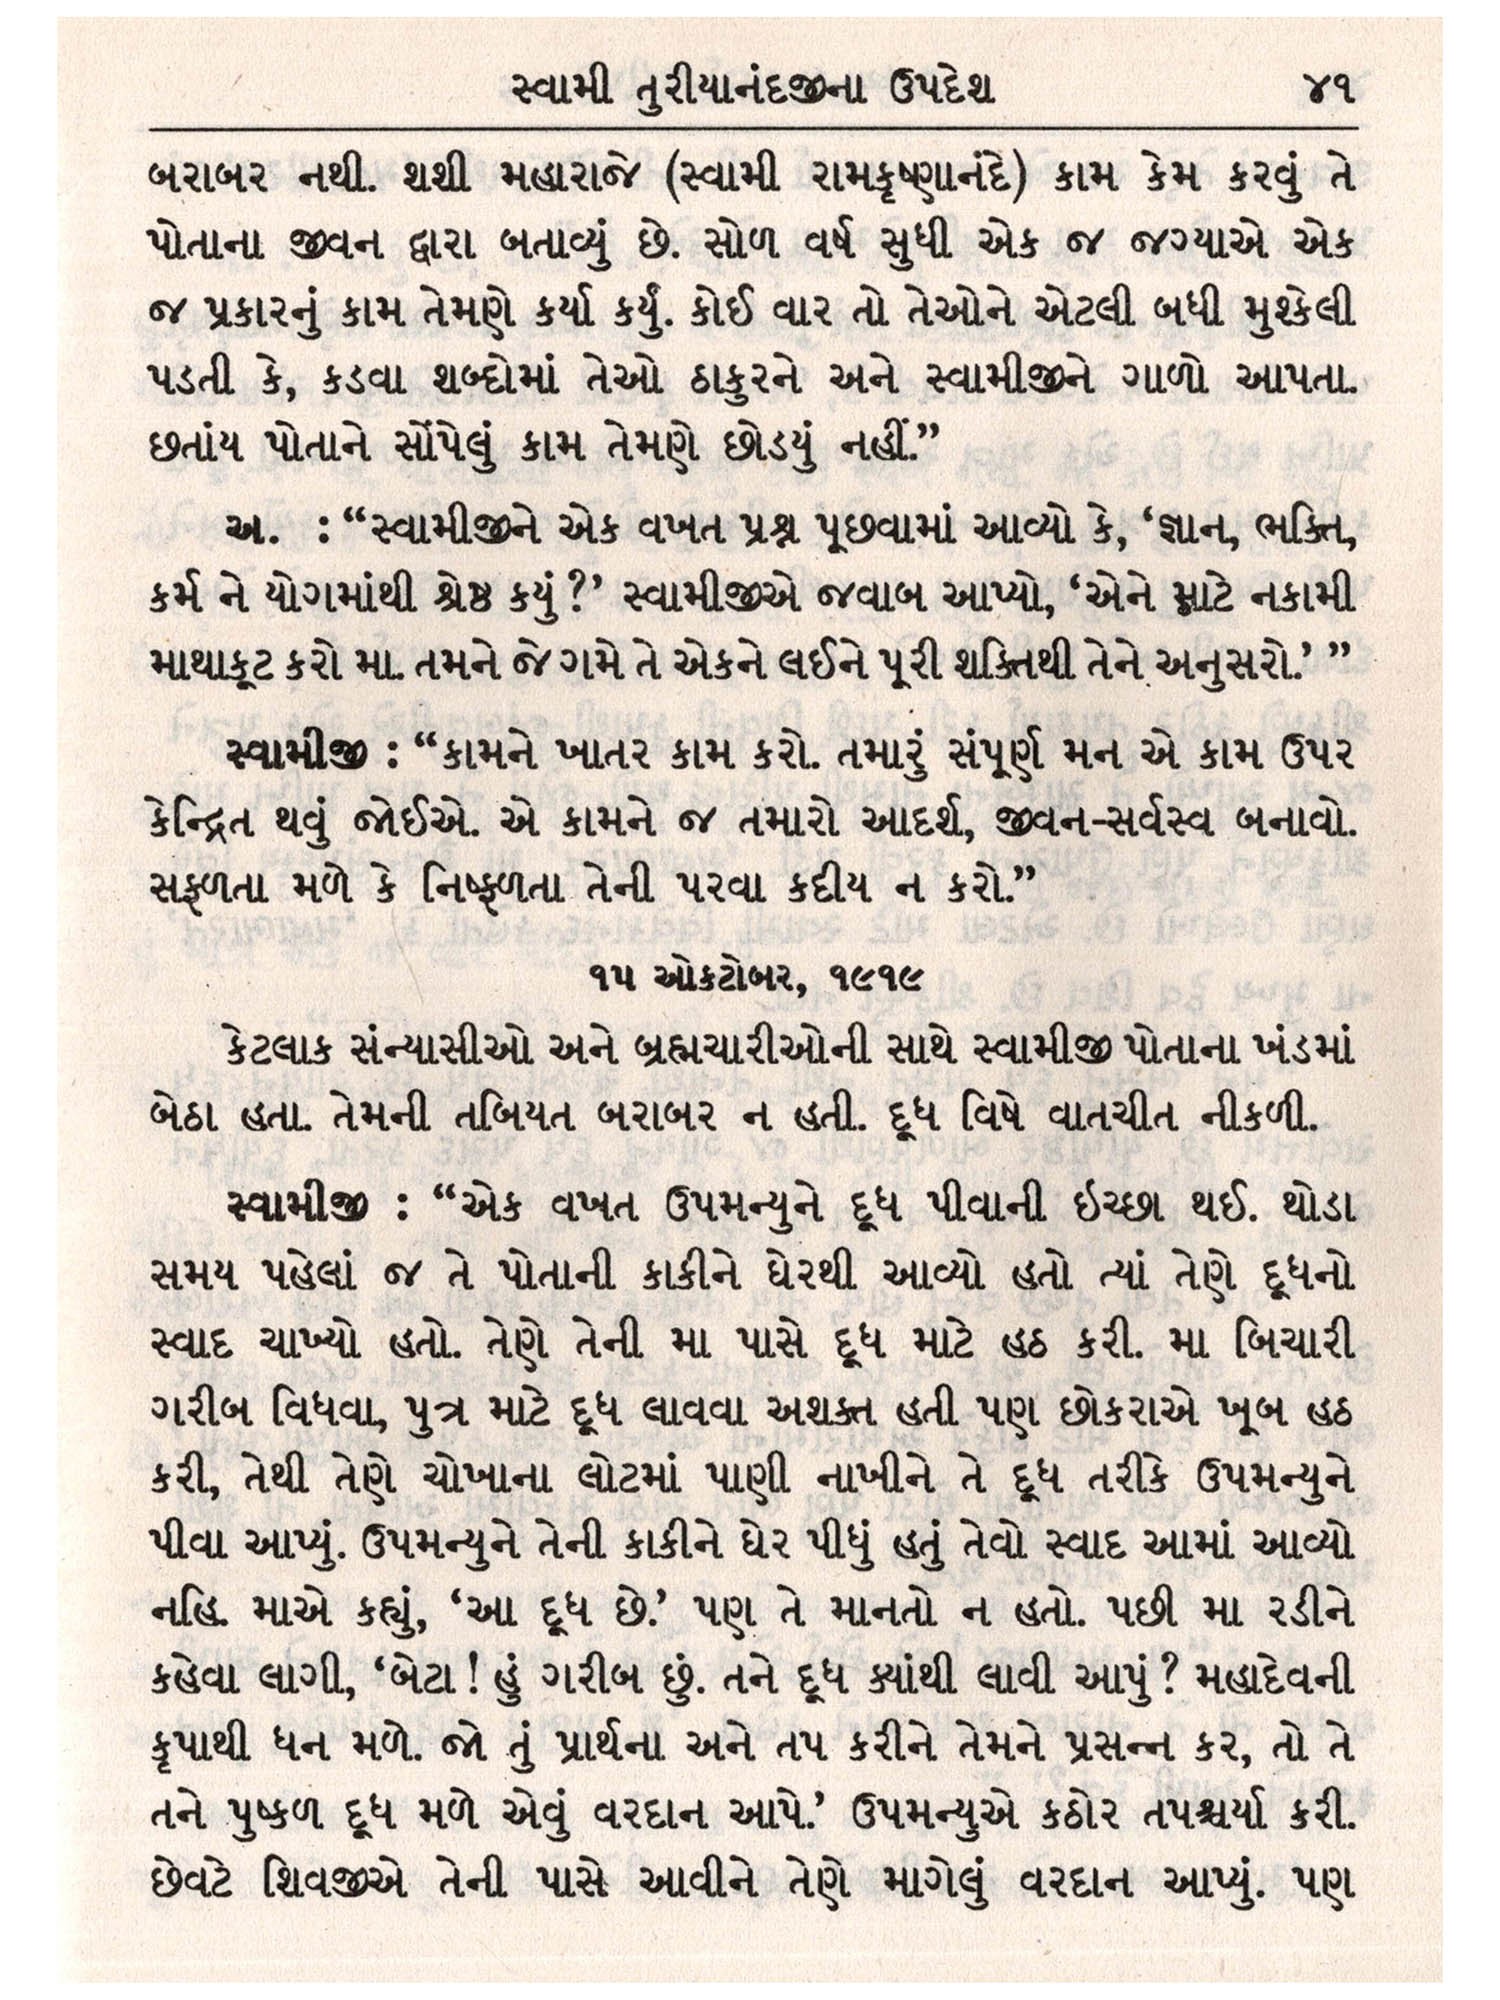 સ્વામી તુરીયાનંદજીના ઉપદેશ ૪૧
બરાબર નથી. શશી મહારાજે (સ્વામી રામકૃષ્ણાનંદે) કામ કેમ કરવું તે
પોતાના જીવન દ્વારા બતાવ્યું છે. સોળ વર્ષ સુધી એક જ જગ્યાએ એક
જ પ્રકારનું કામ તેમણે કર્યા કર્યું. કોઈ વાર તો તેઓને એટલી બધી મુશ્કેલી
પડતી કે, કડવા શબ્દોમાં તેઓ ઠાકુરને અને સ્વામીજીને ગાળો આપતા.
છતાંય પોતાને સોંપેલું કામ તેમણે છોડયું નહીં.”
અ. : “સ્વામીજીને એક વખત પ્રશ્ન પૂછવામાં આવ્યો કે, ‘જ્ઞાન, ભક્તિ,
કર્મ ને યોગમાંથી શ્રેષ્ઠ કયું ?’ સ્વામીજીએ જવાબ આપ્યો, ‘એને માટે નકામી
માથાકૂટ કરો મા. તમને જે ગમે તે એકને લઈને પૂરી શક્તિથી તેને અનુસરો.’ ”
સ્વામીજી : “કામને ખાતર કામ કરો. તમારું સંપૂર્ણ મન એ કામ ઉપર
કેન્દ્રિત થવું જોઈએ. એ કામને જ તમારો આદર્શ, જીવન-સર્વસ્વ બનાવો.
સફળતા મળે કે નિષ્ફળતા તેની પરવા કદીય ન કરો.”
૧૫ ઓક્ટોબર, ૧૯૧૯
કેટલાક સંન્યાસીઓ અને બ્રહ્મચારીઓની સાથે સ્વામીજી પોતાના ખંડમાં
બેઠા હતા. તેમની તબિયત બરાબર ન હતી. દૂધ વિષે વાતચીત નીકળી.
સ્વામીજી : “એક વખત ઉપમન્યુને દૂધ પીવાની ઇચ્છા થઈ. થોડા
સમય પહેલાં જ તે પોતાની કાકીને ઘેરથી આવ્યો હતો ત્યાં તેણે દૂધનો
સ્વાદ ચાખ્યો હતો. તેણે તેની મા પાસે દૂધ માટે હઠ કરી. મા બિચારી
ગરીબ વિધવા, પુત્ર માટે દૂધ લાવવા અશક્ત હતી પણ છોકરાએ ખૂબ હઠ
કરી, તેથી તેણે ચોખાના લોટમાં પાણી નાખીને તે દૂધ તરીકે ઉપમન્યુને
પીવા આપ્યું. ઉપમન્યુને તેની કાકીને ઘેર પીધું હતું તેવો સ્વાદ આમાં આવ્યો
નહિ. માએ કહ્યું, ‘આ દૂધ છે.’ પણ તે માનતો ન હતો. પછી મા રડીને
કહેવા લાગી, ‘બેટા ! હું ગરીબ છું. તને દૂધ ક્યાંથી લાવી આપું ? મહાદેવની
કૃપાથી ધન મળે. જો તું પ્રાર્થના અને તપ કરીને તેમને પ્રસન્ન કર, તો તે
તને પુષ્કળ દૂધ મળે એવું વરદાન આપે.’ ઉપમન્યુએ કઠોર તપશ્ચર્યા કરી.
છેવટે શિવજીએ તેની પાસે આવીને તેણે માગેલું વરદાન આપ્યું. પણ